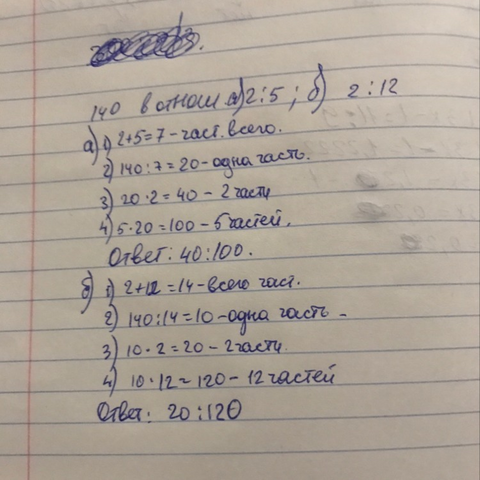 140 в отнош а) 2:5; б) 2:12
а) 1) 2+5=7 – част. всего.
2) 140:7=20 – одна часть.
3) 20·2=40 – 2 части
4) 5·20=100 – 5 частей.
Ответ: 40:100.
б) 1) 2+12=14 – всего част.
2) 140:14=10 – одна часть –
3) 10·2=20 – 2 части.
4) 10·12=120 – 12 частей
Ответ: 20:120